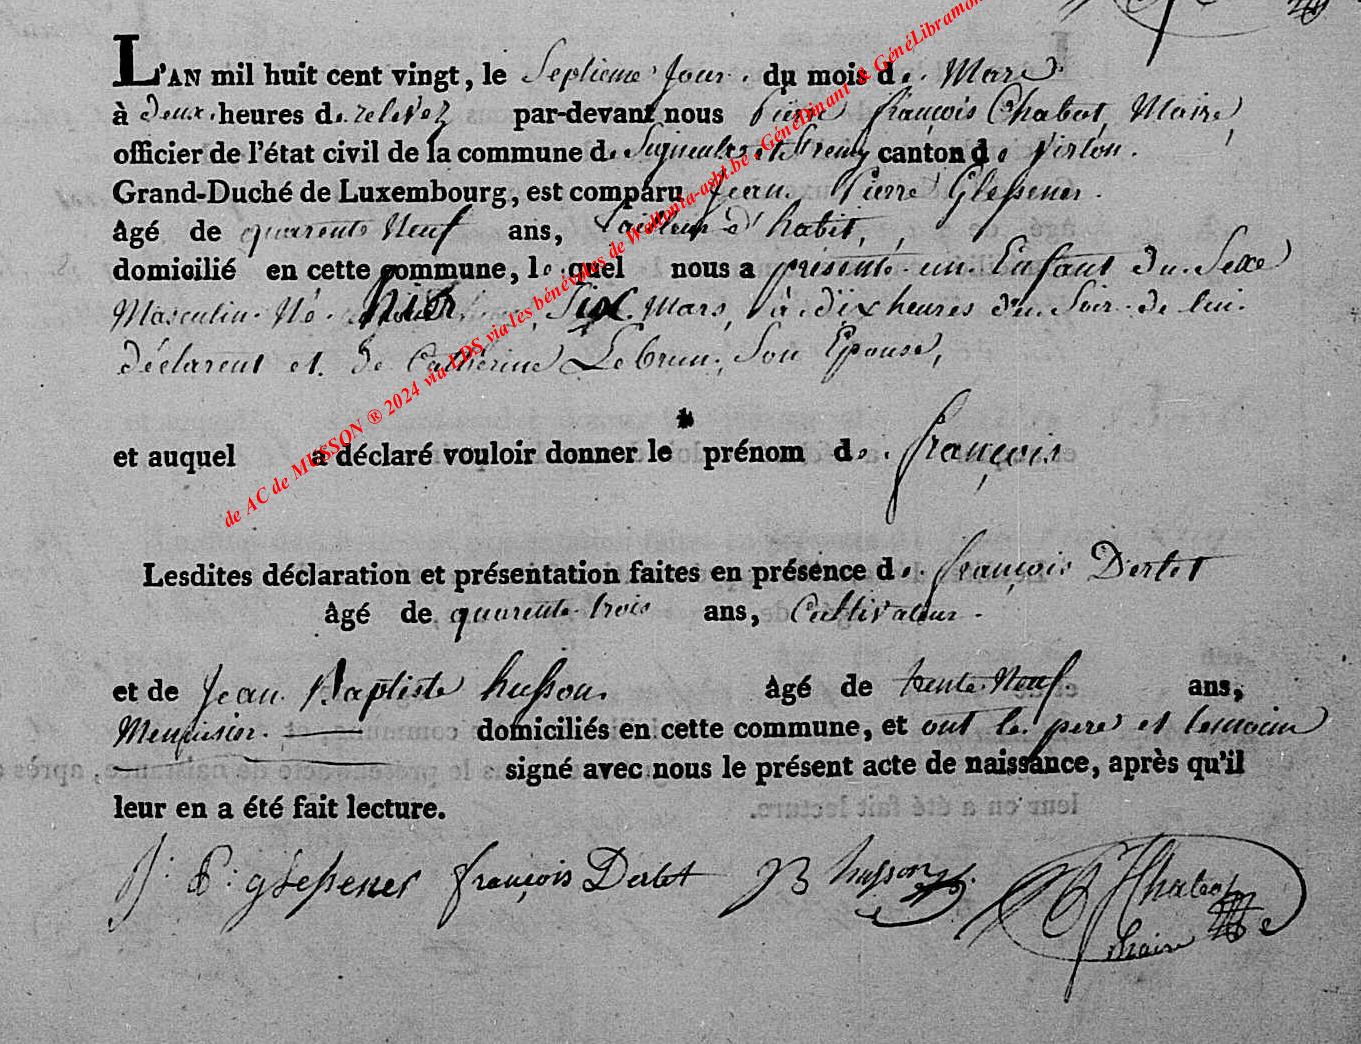 L'AN mil huit cent vingt, le Septieme Jour. du mois de. Mars
à deux. heures de. relevez par-devant nous Pierre françois Chabot, Maire,
officier de l'état civil de la commune de Signeulx et canton de Virton.
Grand-Duché de Luxembourg, est comparu Jean Pierre Glessener.
âgé de quarente Neuf ans, tailleur d'habit,
domicilié en cette commune, lequel nous a présenté un Enfant du Sexe
Masculin. Né. hier Six Mars, à dix heures du Soir de lui.
déclarent et de Catherine Lebrun, Son Epouse,
et auquel a déclaré vouloir donner le prénom de. françois
Lesdites déclaration et présentation faites en présence de. françois Dertet
âgé de quarente trois ans, Cultivateur.
et de Jean Baptiste husson. âgé de trente Neuf ans,
Menuisier. domiciliés en cette commune, et ont le pere et temoin
signé avec nous le présent acte de naissance, après qu'il
leur en a été fait lecture.
J: P: glessener françois Dertet JB husson PF Chabot
Maire
de AC de MUSSON ® 2024 via LDS via les bénévoles de Wallonia-asbl.be - GénéDinant & GénéLibramont